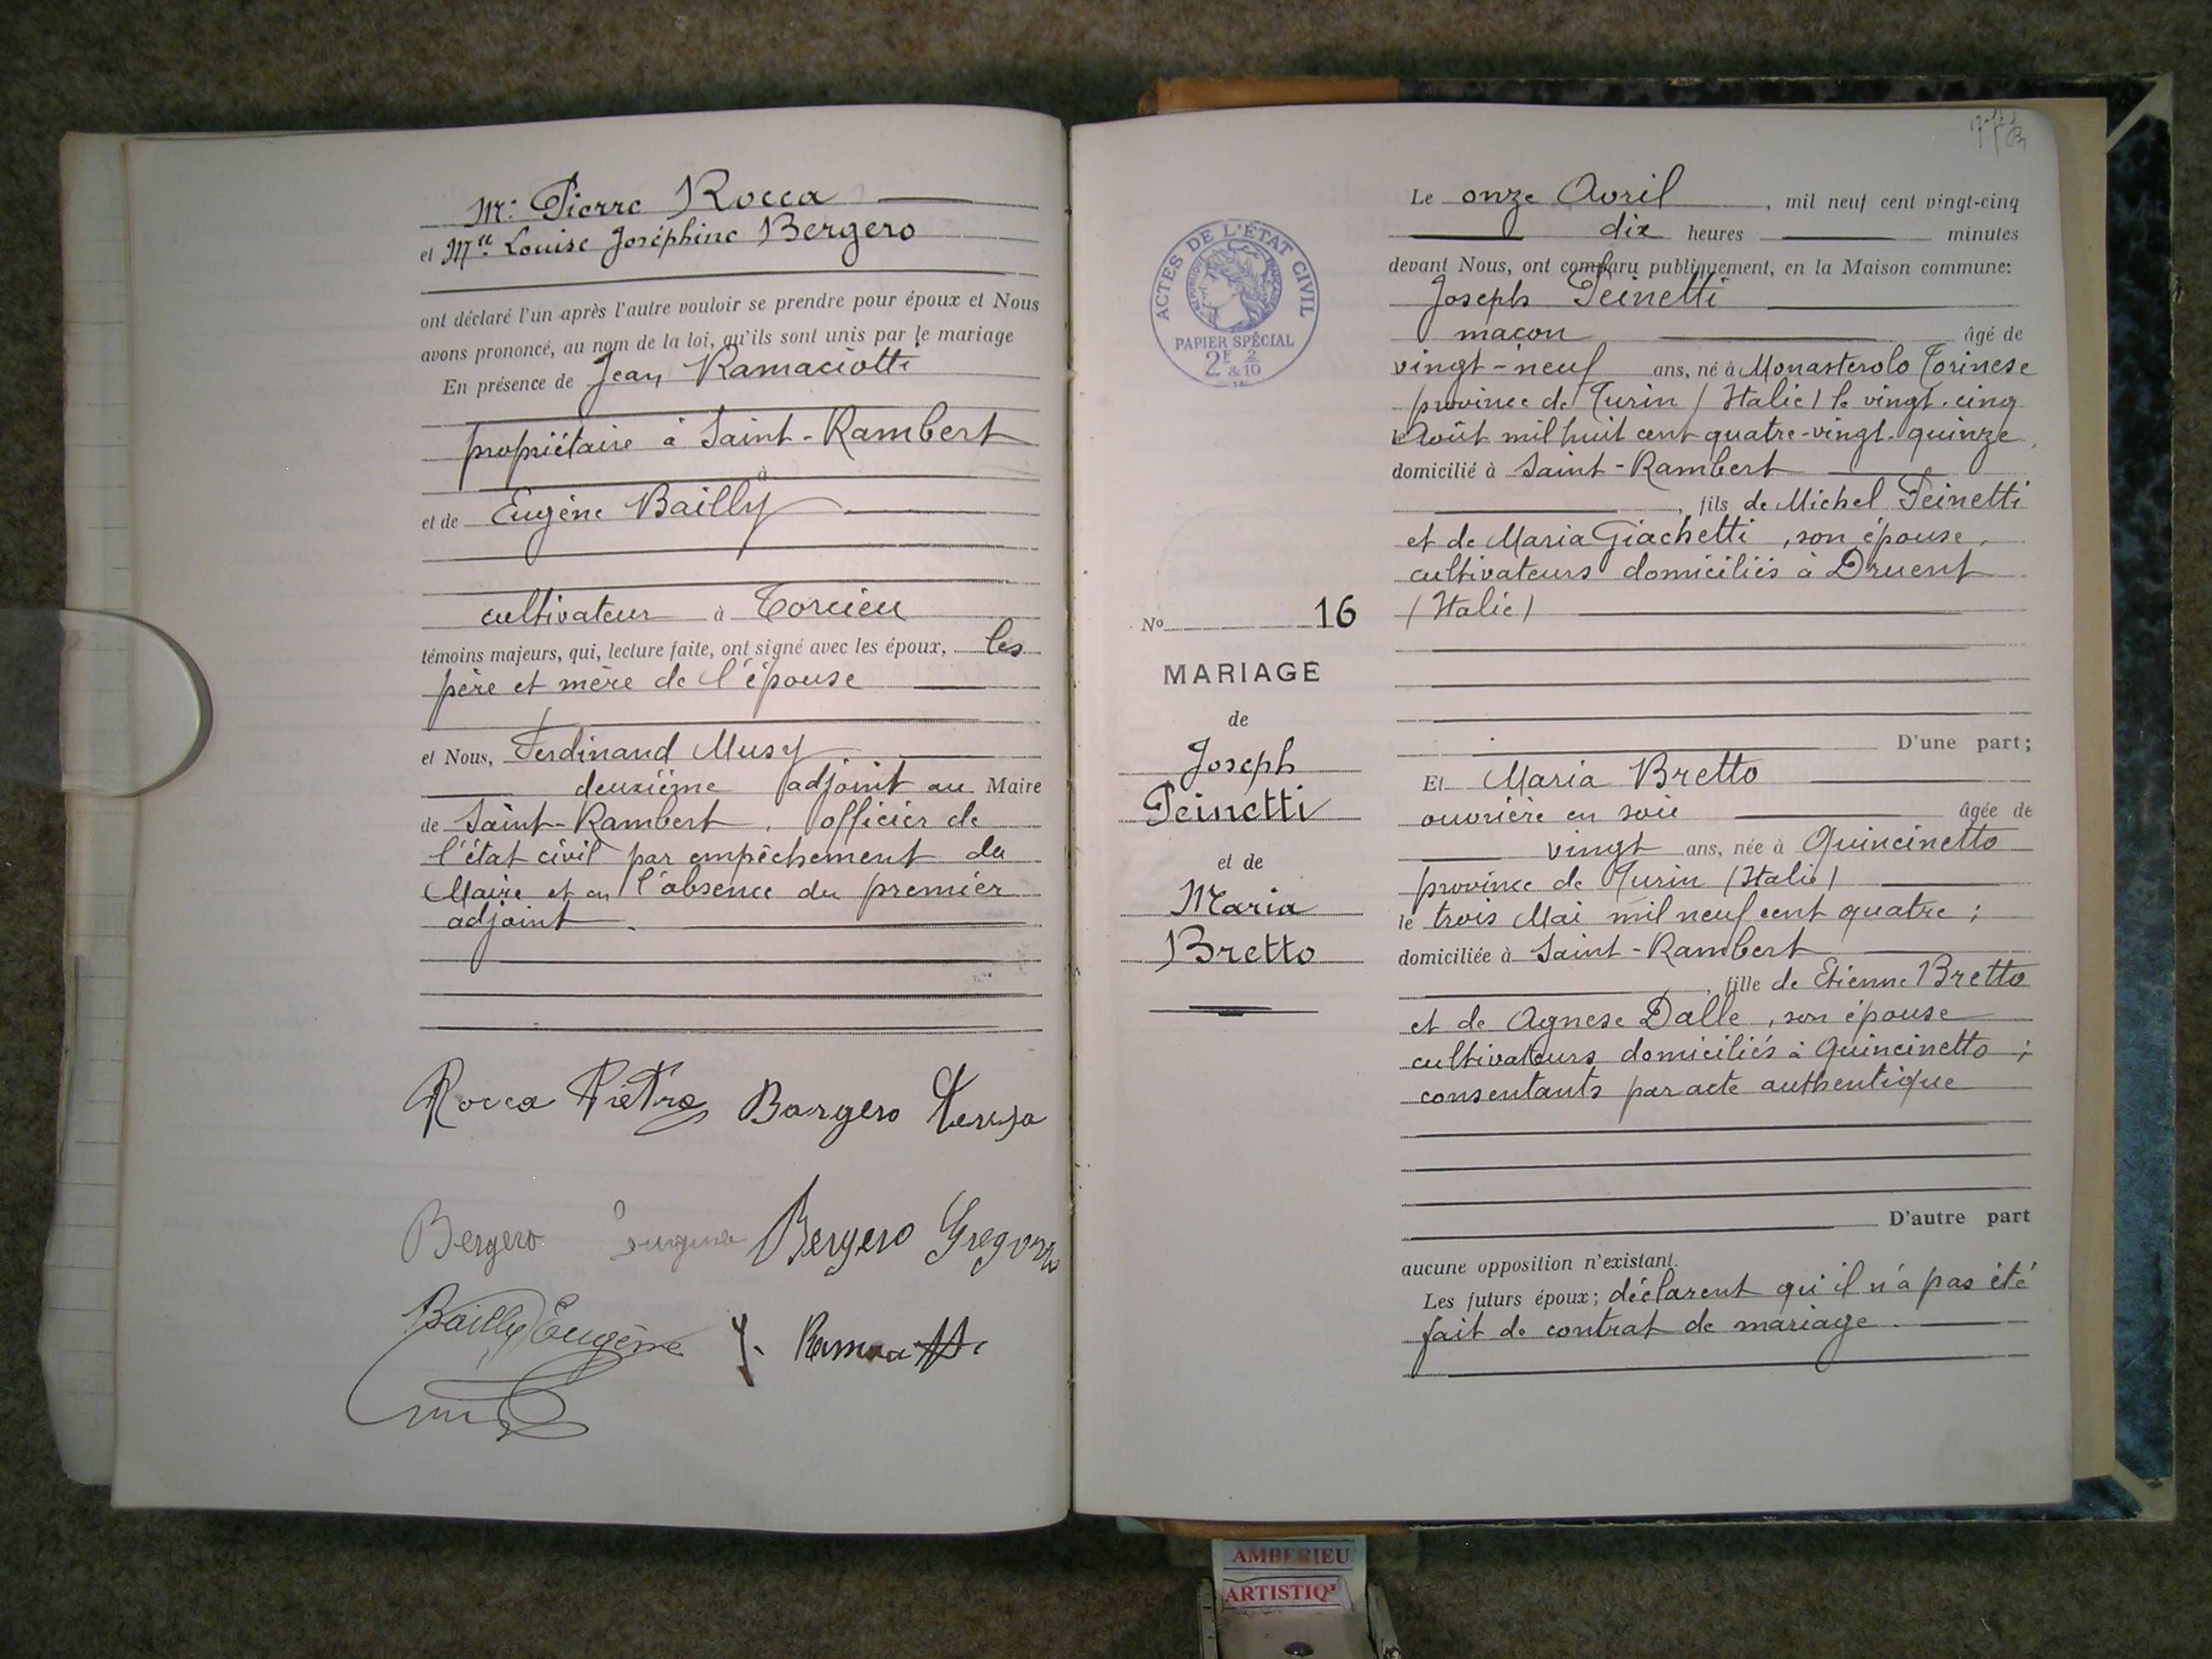 Mr. Pierre Rocca
et Melle Louise Joséphine Bergero
ont déclaré l'un après l'autre vouloir se prendre pour époux et Nous
avons prononcé, au nom de la loi, qu'ils sont unis par le mariage
En présence de Jean Ramaciotti
propriétaire à Saint-Rambert
à
et de Eugène Bailly
cultivateur à Torcieu
témoins majeurs, qui, lecture faite, ont signé avec les époux, les
père et mère de l'épouse
et Nous, Ferdinand Musy
deuxième adjoint au Maire
de Saint-Rambert, officier de
l'état civil par empêchement du
Maire et en l'absence du premier
adjoint.
Rocca Pietro Bargero
Bergero Bergero
Bailly Eugène J.
ACTES DE L'ÉTAT CIVIL
PAPIER SPÉCIAL
2F 2
& 10
No 16
MARIAGE
de
Joseph
Peinetti
et de
Maria
Bretto
Le onze Avril, mil neuf cent vingt-cinq
dix heures minutes
devant Nous, ont comparu publiquement, en la Maison commune:
Joseph Peinetti
maçon âgé de
vingt-neuf ans, né à Monasterolo Torinese
province de Turin (Italie) le vingt-cinq
Août mil huit cent quatre-vingt-quinze,
domicilié à Saint-Rambert
, fils de Michel Peinetti
et de Maria Giachetti, son épouse,
cultivateurs domiciliés à Druent
(Italie)
D'une part;
Et Maria Bretto
ouvrière en soie âgée de
vingt ans, née à Quincinetto
province de Turin (Italie)
le trois Mai mil neuf cent quatre;
domiciliée à Saint-Rambert
, fille de Etienne Bretto
et de Agnese Dalle, son épouse
cultivateurs domiciliés à Quincinetto;
consentants par acte authentique
D'autre part
aucune opposition n'existant.
Les futurs époux; déclarent qu'il n'a pas été
fait de contrat de mariage.
AMBERIEU
ARTISTIQ